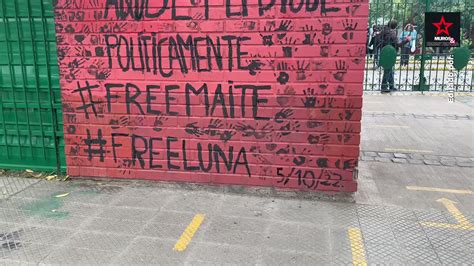 POLITICAMENTE
#FREEMAITE
#FREELUNA
5/10/22